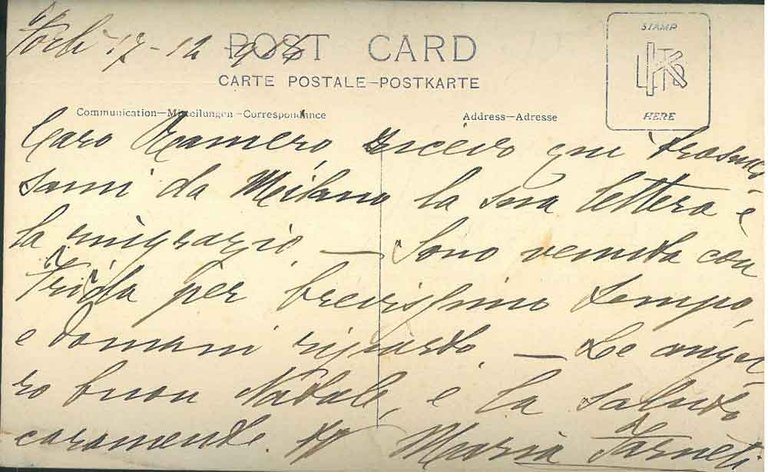 Forlì 17-12-908
POST CARD
CARTE POSTALE—POSTKARTE
STAMP
HERE
Communication—Mitteilungen-Correspondance
Address—Adresse
Caro Ramero, ricevo qui trasmes
sami da Milano la sua lettera e
la ringrazio — Sono venuta con
Frida per brevissimo tempo,
e domani riparto. — Le augu
ro buon Natale, e la saluto
caramente. Maria Farneti